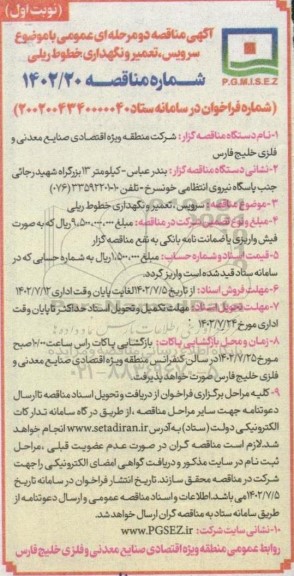 (نوبت اول)
آگهی مناقصه دو مرحله ای عمومی با موضوع
سرویس، تعمیر و نگهداری خطوط ریلی
P.G.M.I.S.E.Z
شماره مناقصه ۱۴۰۲/۲۰
(شماره فراخوان در سامانه ستاد ۲۰۰۲۰۰۴۳۴۰۰۰۰۰۴۰)
۱-نام دستگاه مناقصه گزار: شرکت منطقه ویژه اقتصادی صنایع معدنی و
فلزی خلیج فارس
۲- نشانی دستگاه مناقصه گزار: بندر عباس-کیلومتر ۱۳ بزرگراه شهید رجائی
جنب پاسگاه نیروی انتظامی خونسرخ-تلفن ۱۰-۳۳۵۹۲۲۰۱ (۰۷۶)
۳- موضوع مناقصه: سرویس، تعمیر و نگهداری خطوط ریلی
۴- مبلغ تضمین شرکت در مناقصه: مبلغ ریال که به صورت
فیش واریزی یا ضمانت نامه بانکی به نفع مناقصه گزار
۵- قیمت اسناد و شماره حساب: مبلغ ۱,۵۰۰,۰۰۰ ریال به شماره حسابی که در
سامانه ستاد قید شده است واریز گردد.
۶- مهلت فروش اسناد: از تاریخ ۱۴۰۲/۷/۵ لغایت پایان وقت اداری ۱۴۰۲/۷/۱۲
۷- مهلت تحویل اسناد: مهلت تکمیل و تحویل اسناد حداکثر تا پایان وقت
اداری مورخ ۱۴۰۲/۷/۲۴
۸- زمان و محل بازگشایی پاکات: بازگشایی پاکات راس ساعت ۱۰:۰۰ صبح
مورخ ۱۴۰۲/۷/۲۵ در سالن کنفرانس منطقه ویژه اقتصادی صنایع معدنی و
فلزی خلیج فارس صورت خواهد پذیرفت.
۹- کلیه مراحل برگزاری فراخوان از دریافت و تحویل اسناد مناقصه تا ارسال
دعوتنامه جهت سایر مراحل مناقصه ،از طریق در گاه سامانه تدارکات
الکترونیکی دولت (ستاد) به آدرس www.setadiran.ir انجام خواهد
شد. لازم است مناقصه گران در صورت عدم عضویت قبلی ،مراحل
ثبت نام در سایت مذکور و دریافت گواهی امضای الکترونیکی را جهت
شرکت در مناقصه محقق سازند. تاریخ انتشار فراخوان در سامانه تاریخ
۱۴۰۲/۷/۵ می باشد. اطلاعات و اسناد مناقصه عمومی و ارسال دعوتنامه از
طریق سامانه ستاد به مناقصه گران ارسال خواهد شد.
۱۰- نشانی سایت شرکت: www.PGSEZ.ir
روابط عمومی منطقه ویژه اقتصادی صنایع معدنی و فلزی خلیج فارس